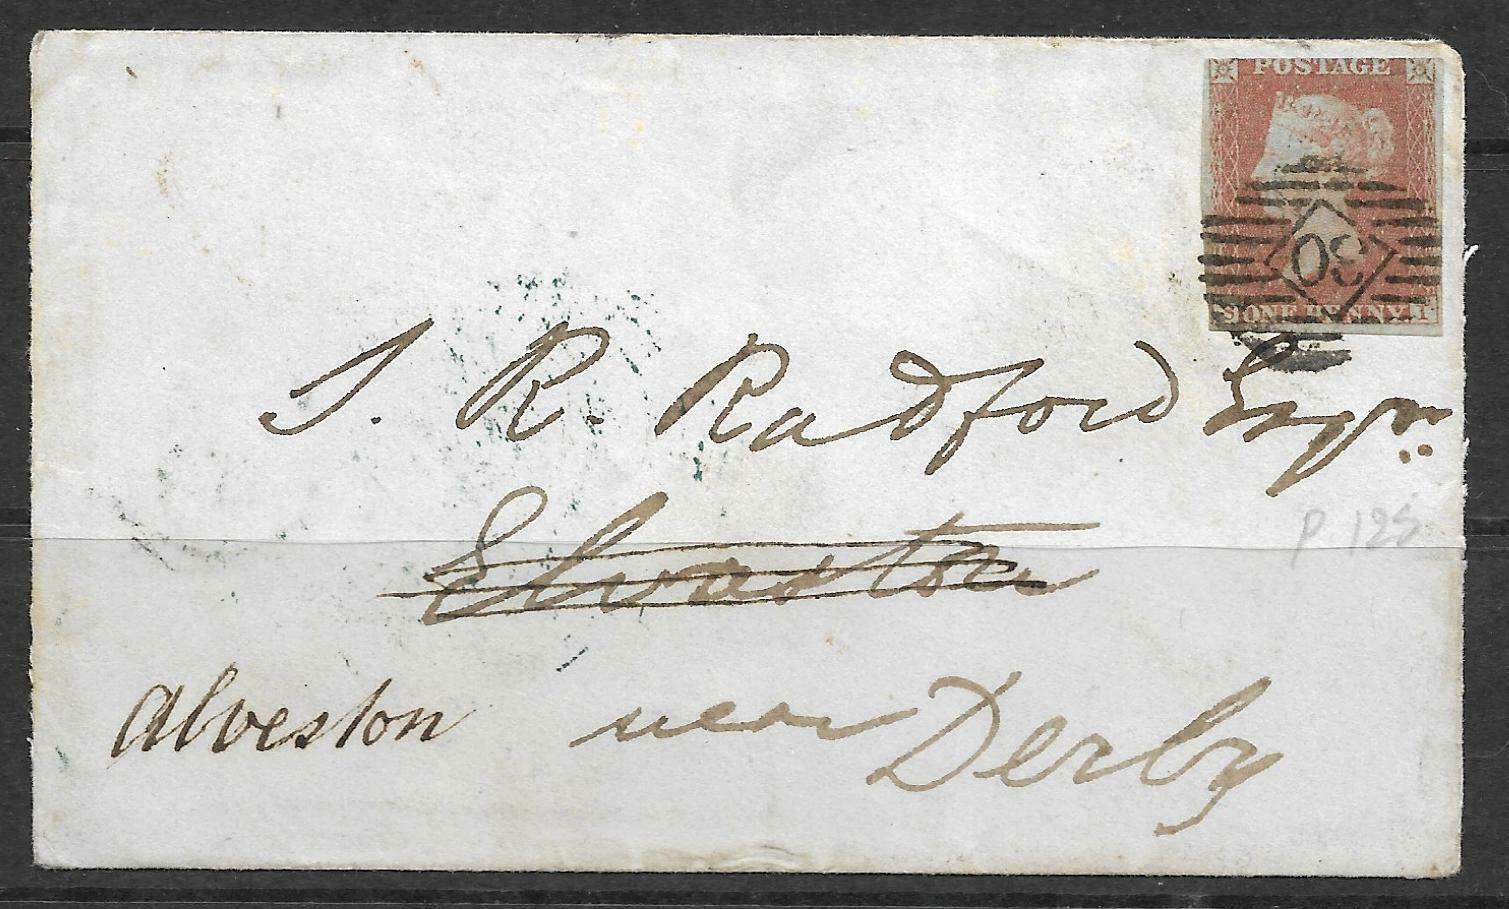 POSTAGE
30
S ONE PENNY I
J. R. Radford Esqre
P. 128
Elvaston
Alveston near Derby